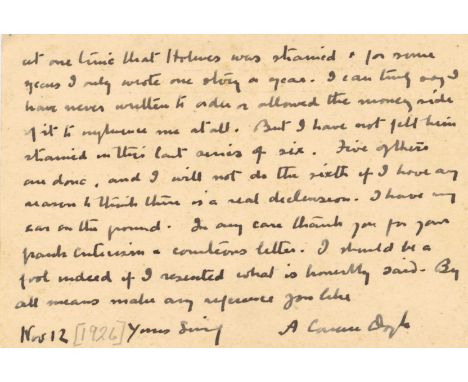 at one time that Holmes was strained & for some
years I only wrote one story a year. I can truly say I
have never written to order or allowed the money side
of it to influence me at all. But I have not felt him
strained in this last series of six. Five of them
are done, and I will not do the sixth if I have any
reason to think there is a real declension. I have my
ear on the ground. In any case thank you for your
frank criticism & courteous letter. I should be a
fool indeed if I resented what is honestly said. By
all means make any reference you like
Nov 12 [1926] Yours sincy A Conan Doyle